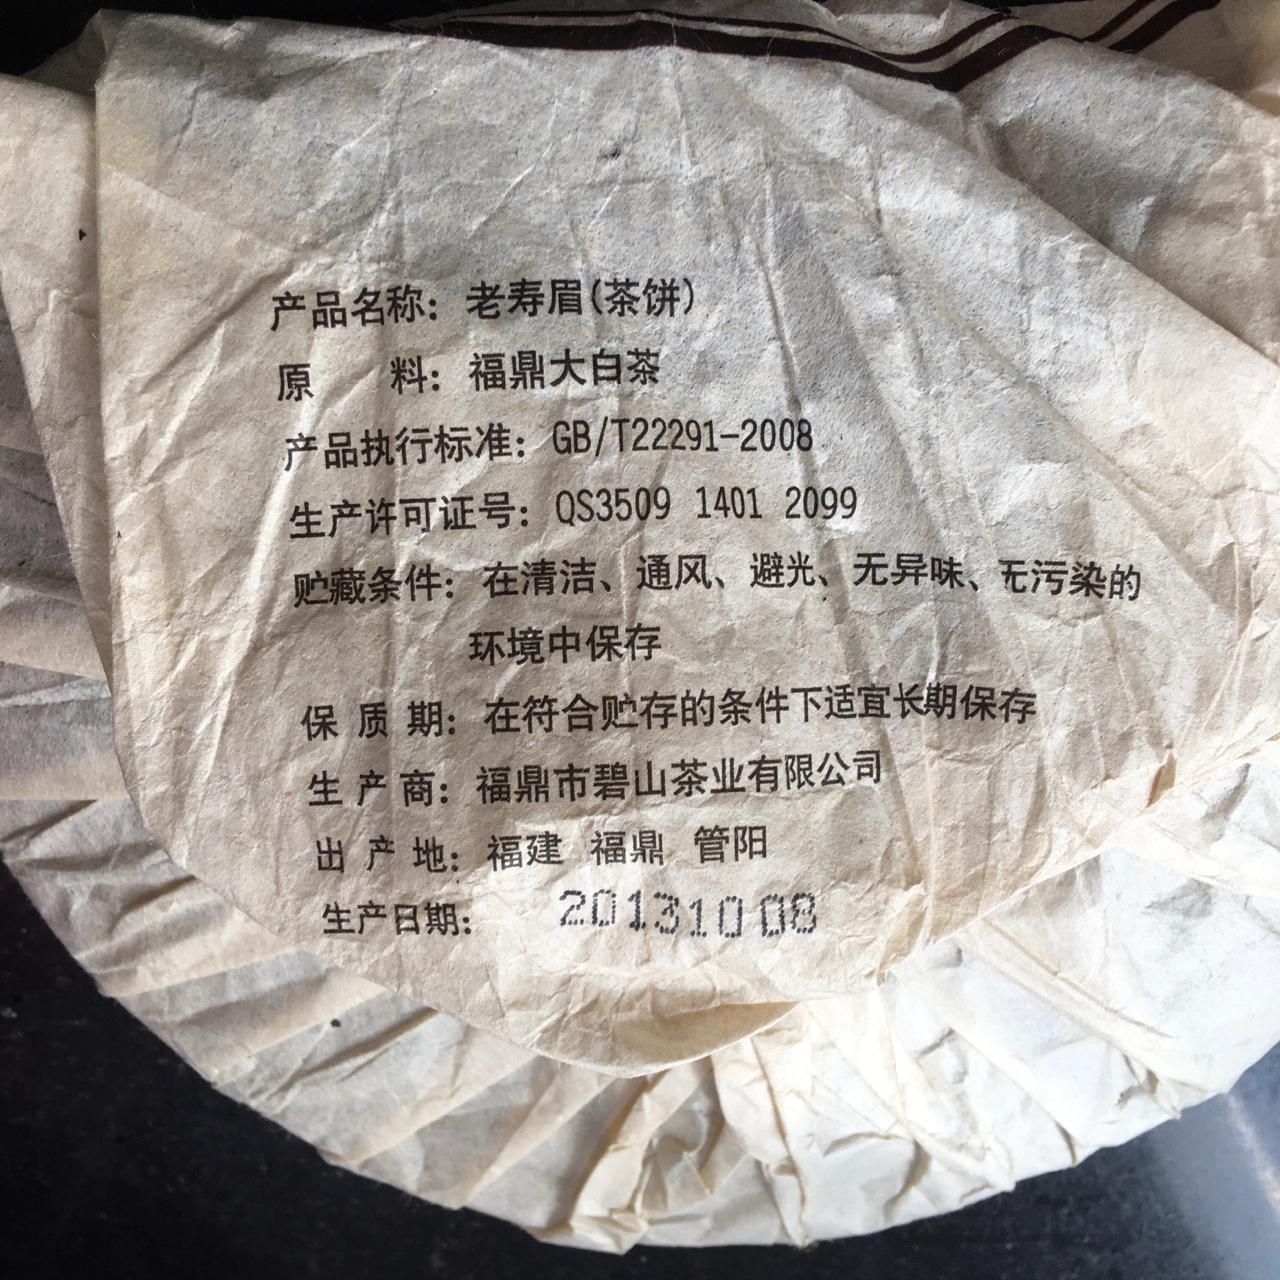 产品名称：老寿眉(茶饼)
原 料：福鼎大白茶
产品执行标准：GB/T22291-2008
生产许可证号：QS3509 1401 2099
贮藏条件：在清洁、通风、避光、无异味、无污染的
环境中保存
保质期：在符合贮存的条件下适宜长期保存
生产商：福鼎市碧山茶业有限公司
出产地：福建 福鼎 管阳
生产日期：20131008